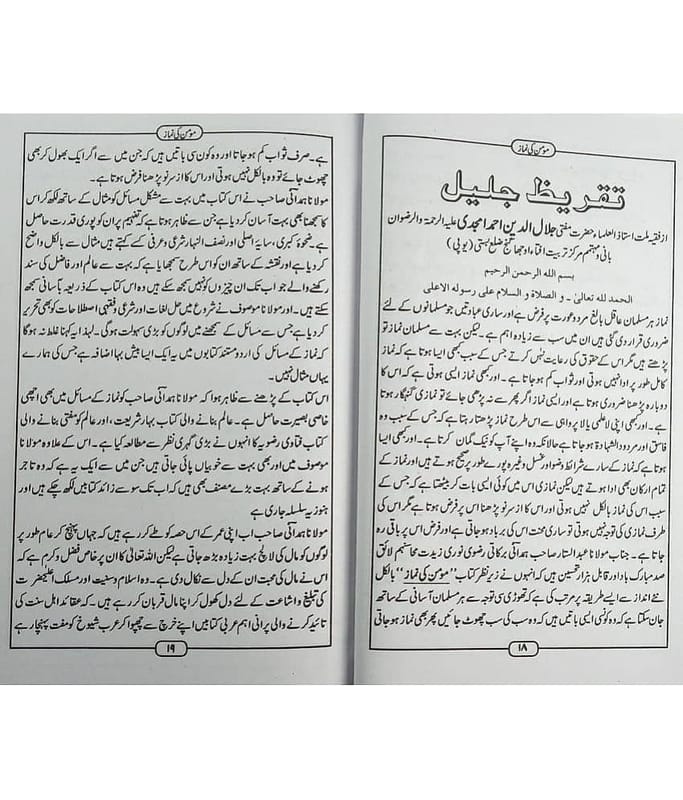 مؤمن کی نماز
تقریظ جلیل
از فقیہ ملت استاذ العلماء حضرت مفتی جلال الدین احمد امجدی علیہ الرحمۃ والرضوان
بانی و مہتمم مرکز تربیت افتاء اوجھا گنج ضلع بستی (یوپی)
بسم الله الرحمن الرحیم
الحمد لله تعالیٰ - و الصلاۃ و السلام علی رسوله الاعلی
نماز ہر مسلمان عاقل بالغ مرد و عورت پر فرض ہے اور ساری عبادتیں جو مسلمانوں کے لئے
ضروری قرار دی گئی ہیں ان میں سب سے زیادہ اہم ہے۔ لیکن بہت سے مسلمان نماز تو
پڑھتے ہیں مگر اس کے حقوق کی رعایت نہیں کرتے جس کے سبب کبھی ایسا ہوتا ہے کہ نماز
کامل طور پر ادا نہیں ہوتی اور ثواب کم ہو جاتا ہے۔ اور کبھی نماز ایسی ہوتی ہے کہ اس کا
دوبارہ پڑھنا ضروری ہوتا ہے اور ایسی نماز اگر پھر سے نہ پڑھی جائے تو نمازی گنہگار ہوتا
ہے۔ اور کبھی اپنی لاعلمی یا لا پرواہی سے اس طرح نماز پڑھتا رہتا ہے کہ جس کے سبب وہ
فاسق اور مردود الشہادۃ ہو جاتا ہے حالانکہ وہ اپنے آپ کو نیک گمان کرتا ہے۔ اور کبھی ایسا
ہوتا ہے کہ نماز کے سارے شرائط وضو اور غسل وغیرہ پورے طور پر صحیح ہوتے ہیں اور نماز کے
تمام ارکان بھی ادا ہوتے ہیں لیکن نمازی اس میں کوئی ایسی بات کر بیٹھتا ہے کہ جس کے
سبب اس کی نماز بالکل نہیں ہوتی اور اس کا از سر نو پڑھنا اس پر فرض ہوتا ہے مگر اس کی
طرف نمازی کی توجہ نہیں ہوتی تو ساری محنت اس کی برباد ہو جاتی ہے اور فرض اس پر باقی رہ
جاتا ہے۔ جناب مولانا عبد الستار صاحب ہمدانی برکاتی رضوی نوری زیدت محاسنہم لائق
صد مبارک باد اور قابل ہزار تحسین ہیں کہ انہوں نے زیر نظر کتاب ”مؤمن کی نماز“ بالکل
نئے انداز سے ایسے طریقہ پر مرتب کی ہے کہ تھوڑی سی توجہ سے ہر مسلمان آسانی کے ساتھ
جان سکتا ہے کہ وہ کونسی ایسی باتیں ہیں کہ وہ سب کی سب چھوٹ جائیں پھر بھی نماز ہو جاتی
۱۸
مؤمن کی نماز
ہے۔ صرف ثواب کم ہو جاتا اور وہ کون سی باتیں ہیں کہ جن میں سے اگر ایک بھول کر بھی
چھوٹ جائے تو وہ بالکل نہیں ہوتی اور اس کا از سر نو پڑھنا فرض ہوتا ہے۔
مولانا ہمدانی صاحب نے اس کتاب میں بہت سے مشکل مسائل کو مثال کے ساتھ لکھ کر اس
کا سمجھنا بھی بہت آسان کر دیا ہے جن سے ظاہر ہوتا ہے کہ تفہیم پر ان کو پوری قدرت حاصل
ہے۔ ضحوۂ کبریٰ، سایۂ اصلی اور نصف النہار شرعی و عرفی کسے کہتے ہیں مثال سے بالکل واضح
کر دیا ہے اور نقشہ کے ساتھ ان کو اس طرح سمجھایا ہے کہ بہت سے عالم اور فاضل کی سند
رکھنے والے جو اب تک ان چیزوں کو نہیں سمجھ سکے ہیں وہ اس کتاب کے ذریعہ بآسانی سمجھ
سکتے ہیں۔ اور مولانا موصوف نے شروع میں حل لغات اور شرعی و فقہی اصطلاحات کو بھی تحریر
کر دیا ہے جس سے مسائل کے سمجھنے میں لوگوں کو بڑی سہولت ہوگی۔ لہذا یہ کہنا غلط نہ ہوگا
کہ نماز کے مسائل کی اردو مستند کتابوں میں یہ ایک ایسا بیش بہا اضافہ ہے جس کی ہمارے
یہاں مثال نہیں۔
اس کتاب کے پڑھنے سے ظاہر ہوا کہ مولانا ہمدانی صاحب کو نماز کے مسائل میں بھی اچھی
خاصی بصیرت حاصل ہے۔ عالم بنانے والی کتاب بہار شریعت، اور عالم کو مفتی بنانے والی
کتاب فتاویٰ رضویہ کا انہوں نے بڑی گہری نظر سے مطالعہ کیا ہے۔ اس کے علاوہ مولانا
موصوف میں اور بھی بہت سے خوبیاں پائی جاتی ہیں جن میں سے ایک یہ ہے کہ وہ تاجر
ہونے کے ساتھ بہت بڑے مصنف بھی ہیں کہ اب تک سو سے زائد کتابیں لکھ چکے ہیں اور
ہنوز یہ سلسلہ جاری ہے
مولانا ہمدانی صاحب اب اپنی عمر کے اس حصہ کو طے کر رہے ہیں کہ جہاں پہنچ کر عام طور پر
لوگوں کو مال کی لالچ بہت زیادہ بڑھ جاتی ہے لیکن اللہ تعالیٰ کا ان پر خاص فضل و کرم ہے کہ
اس نے مال کی محبت ان کے دل سے نکال دی ہے۔ وہ اسلام و سنیت اور مسلک اعلیٰحضرت
کی تبلیغ و اشاعت کے لئے دل کھول کر اپنا مال قربان کر رہے ہیں۔ کہ عقائد اہل سنت کی
تائید کرنے والی پرانی اہم عربی کتابیں اپنے خرچ سے چھپوا کر عرب شیوخ کو مفت پہنچا رہے
۱۹